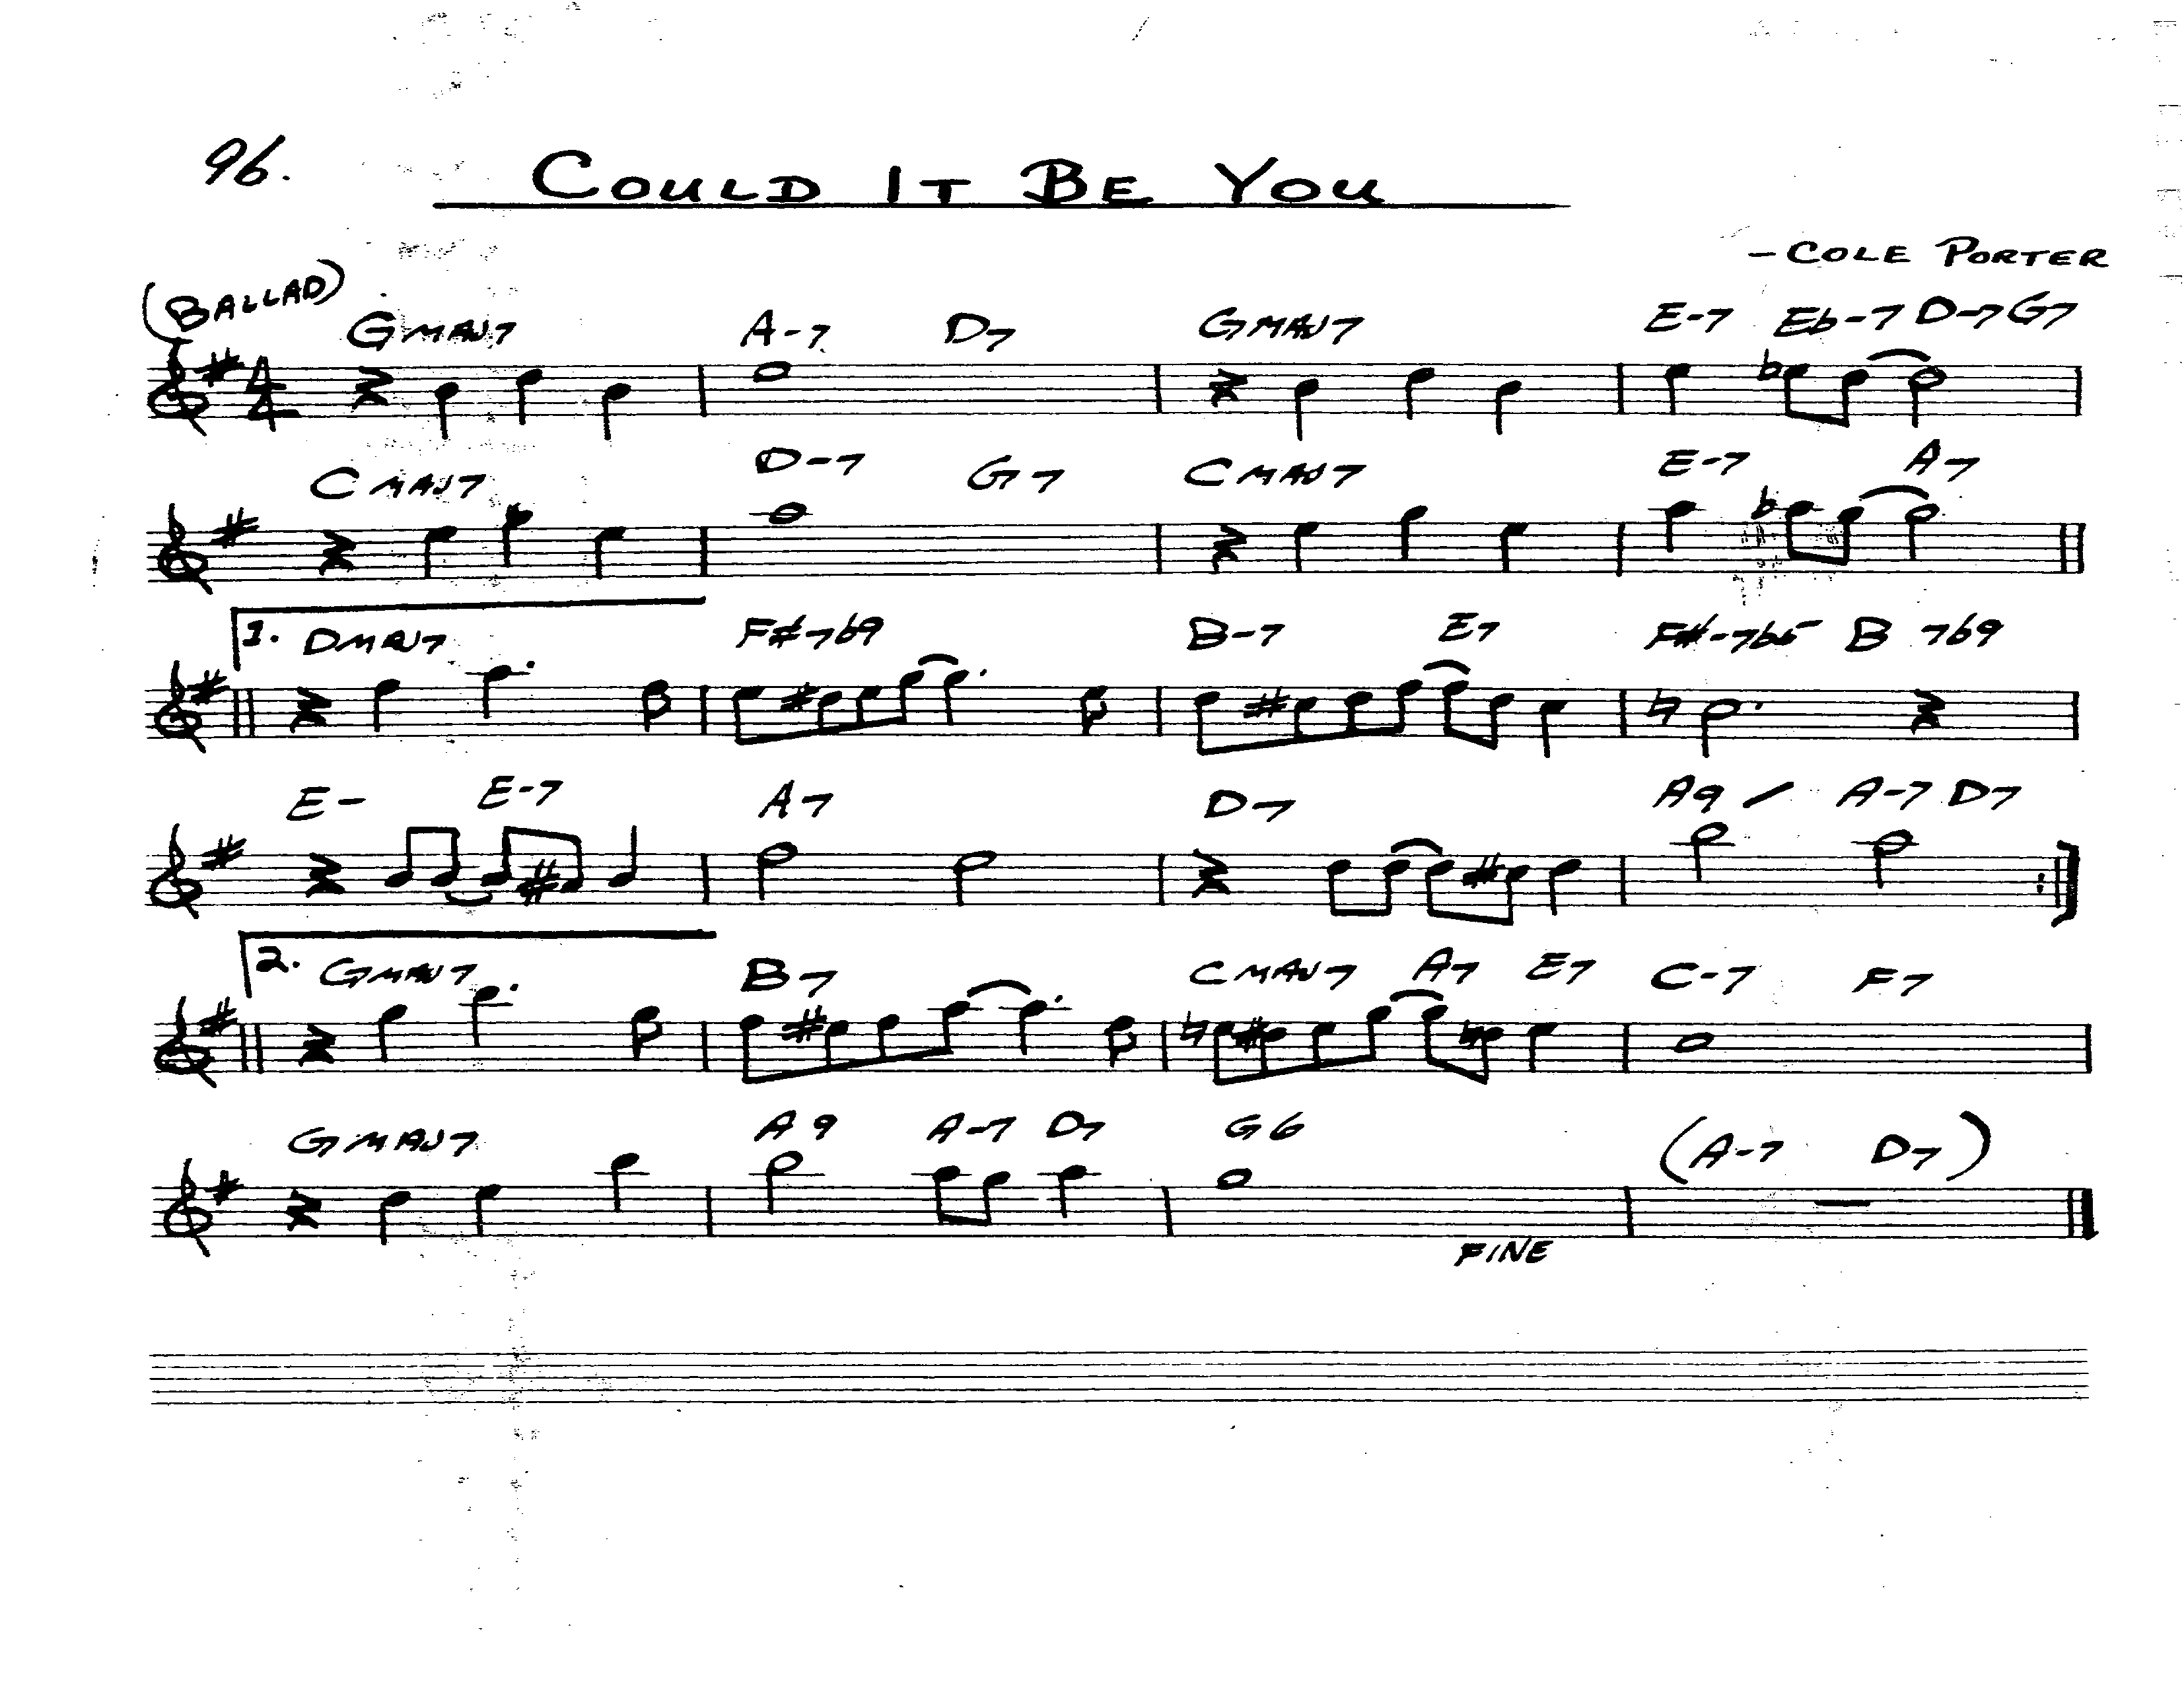 96.
COULD IT BE YOU
- COLE PORTER
(BALLAD)
GMAJ7 A-7 D7 GMAJ7 E-7 Eb-7 D-7 G7
4
4
CMAJ7 D-7 G7 CMAJ7 E-7 A7
1. DMAJ7 F#7b9 B-7 E7 F#-7b5 B7b9
E- E-7 A7 D7 A9 / A-7 D7
2. GMAJ7 B7 CMAJ7 A7 E7 C-7 F7
GMAJ7 A9 A-7 D7 G6 (A-7 D7)
FINE